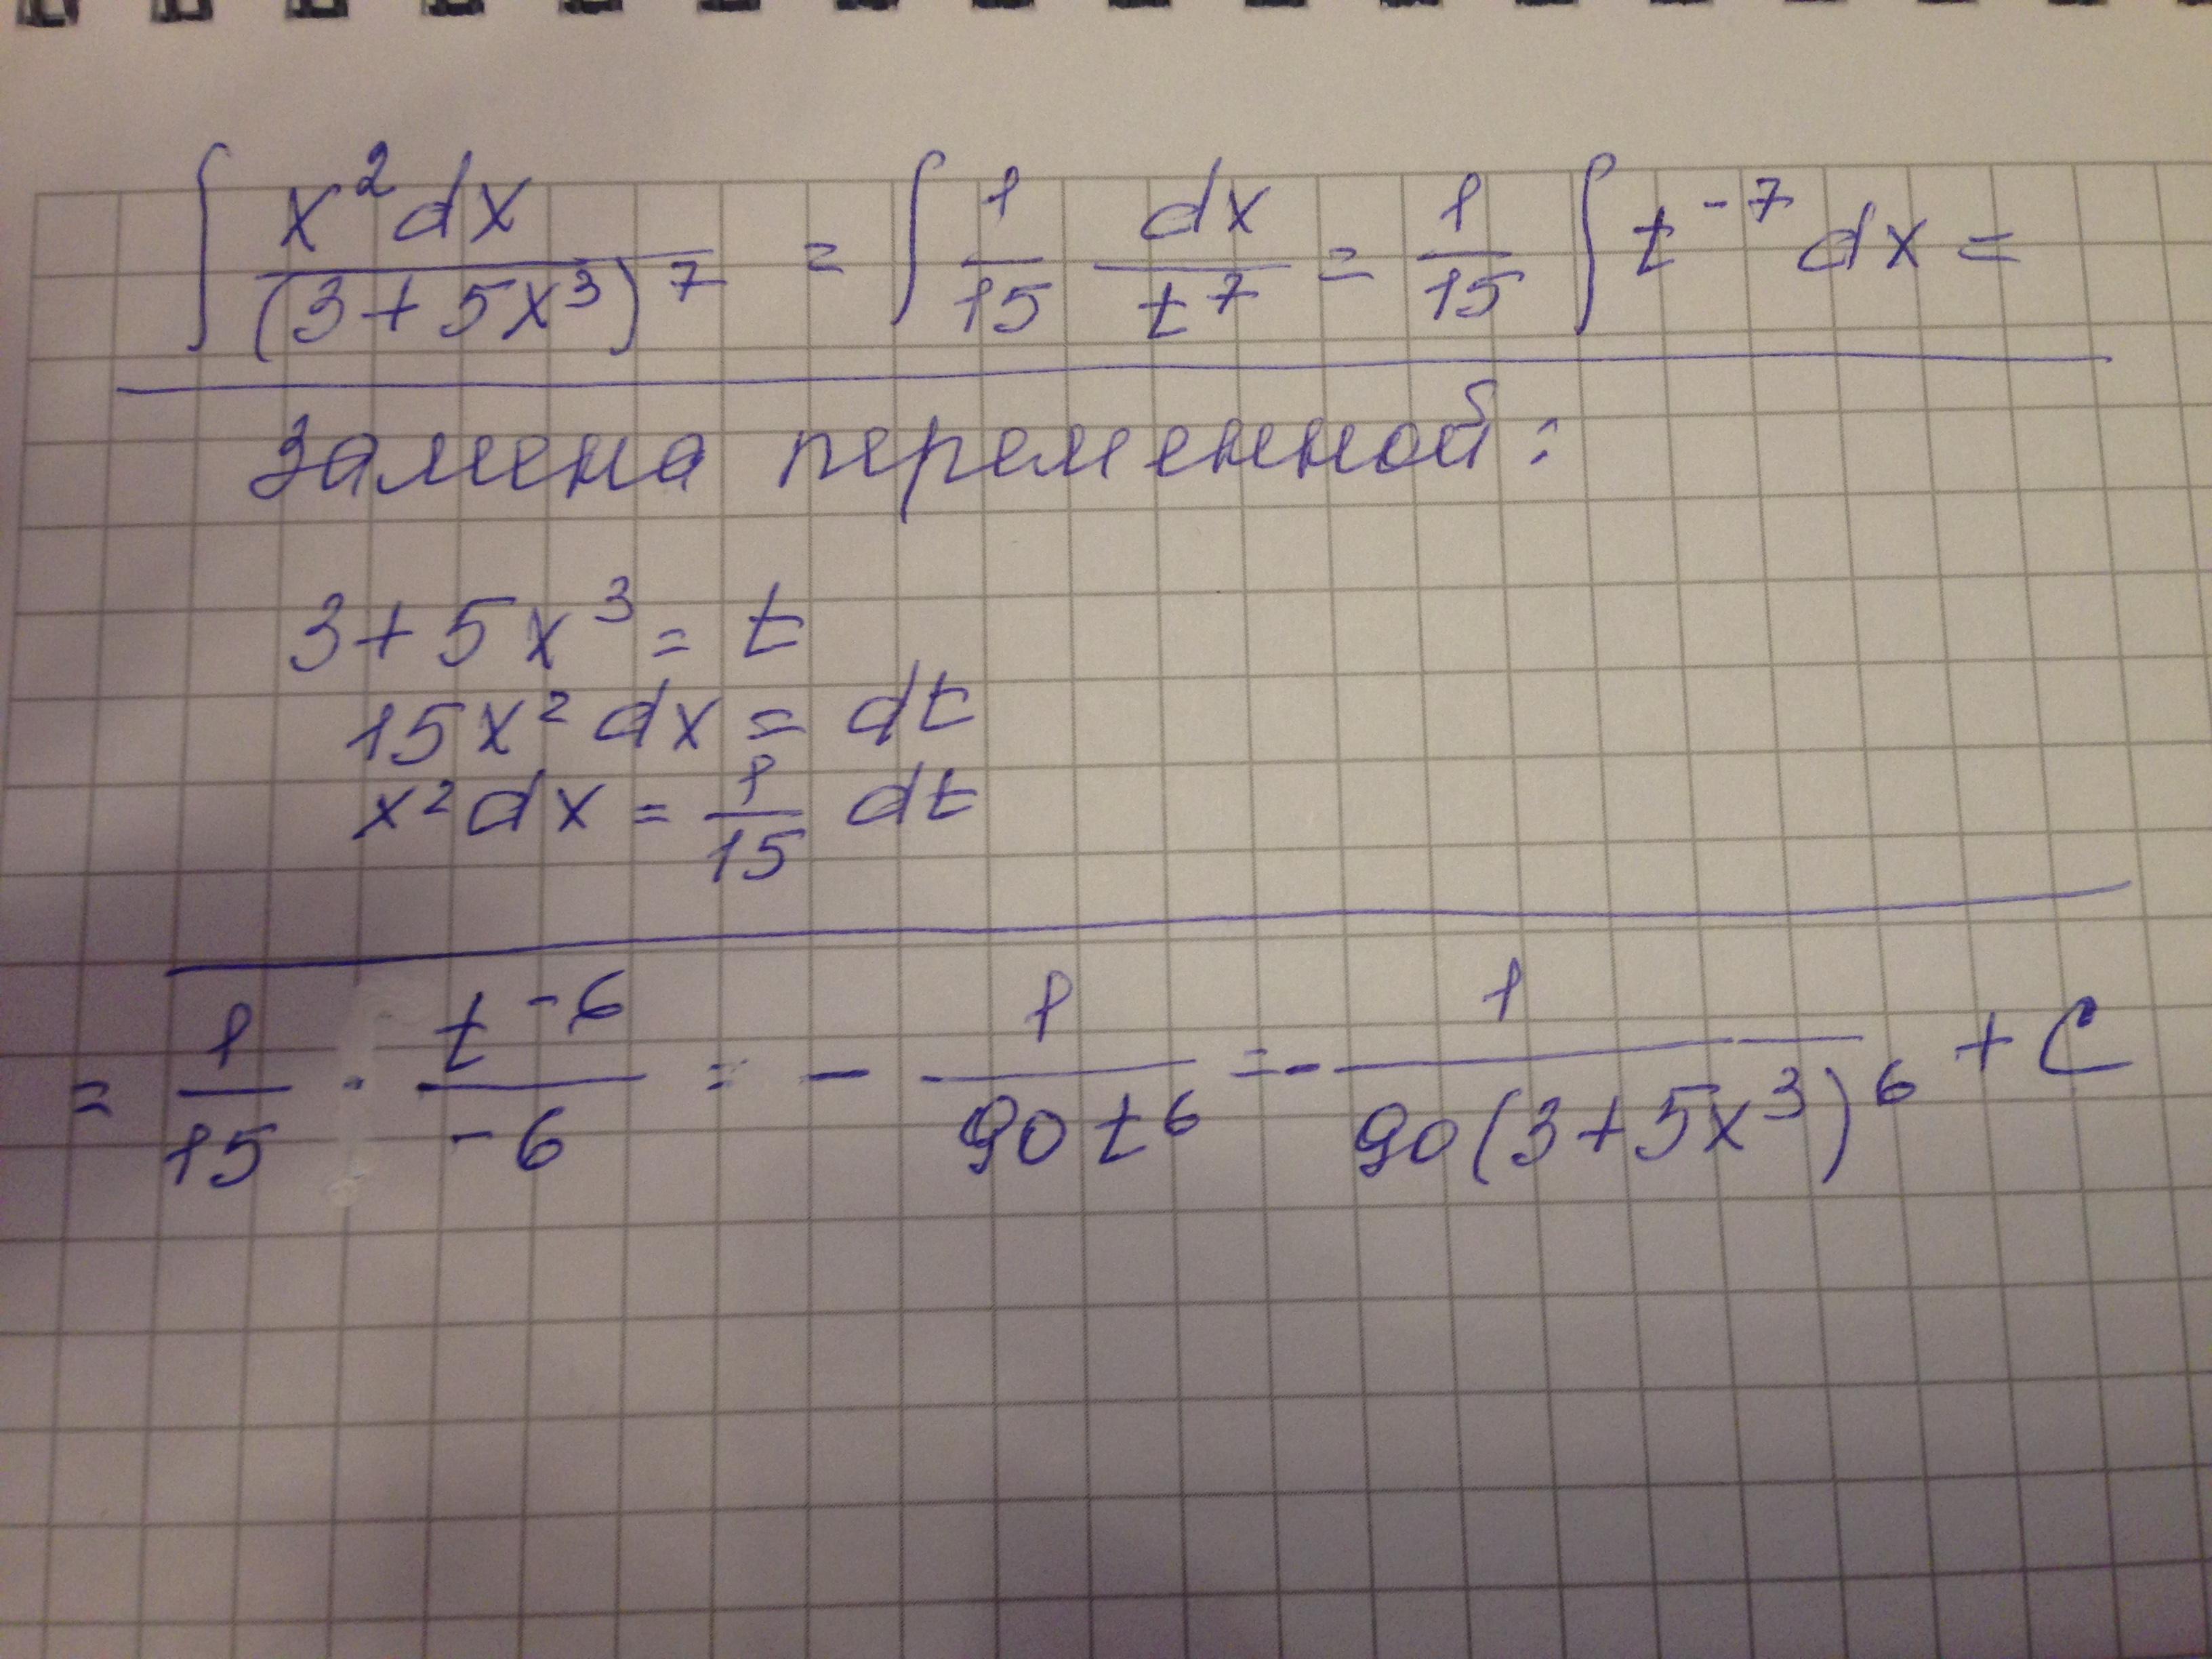 ∫ x² dx / (3 + 5x³)⁷ = ∫ 1/15 dx/t⁷ = 1/15 ∫ t⁻⁷ dx =
замена переменной:
3 + 5x³ = t
15x² dx = dt
x² dx = 1/15 dt
= 1/15 · t⁻⁶/-6 = - 1/90t⁶ = - 1/90(3+5x³)⁶ + C